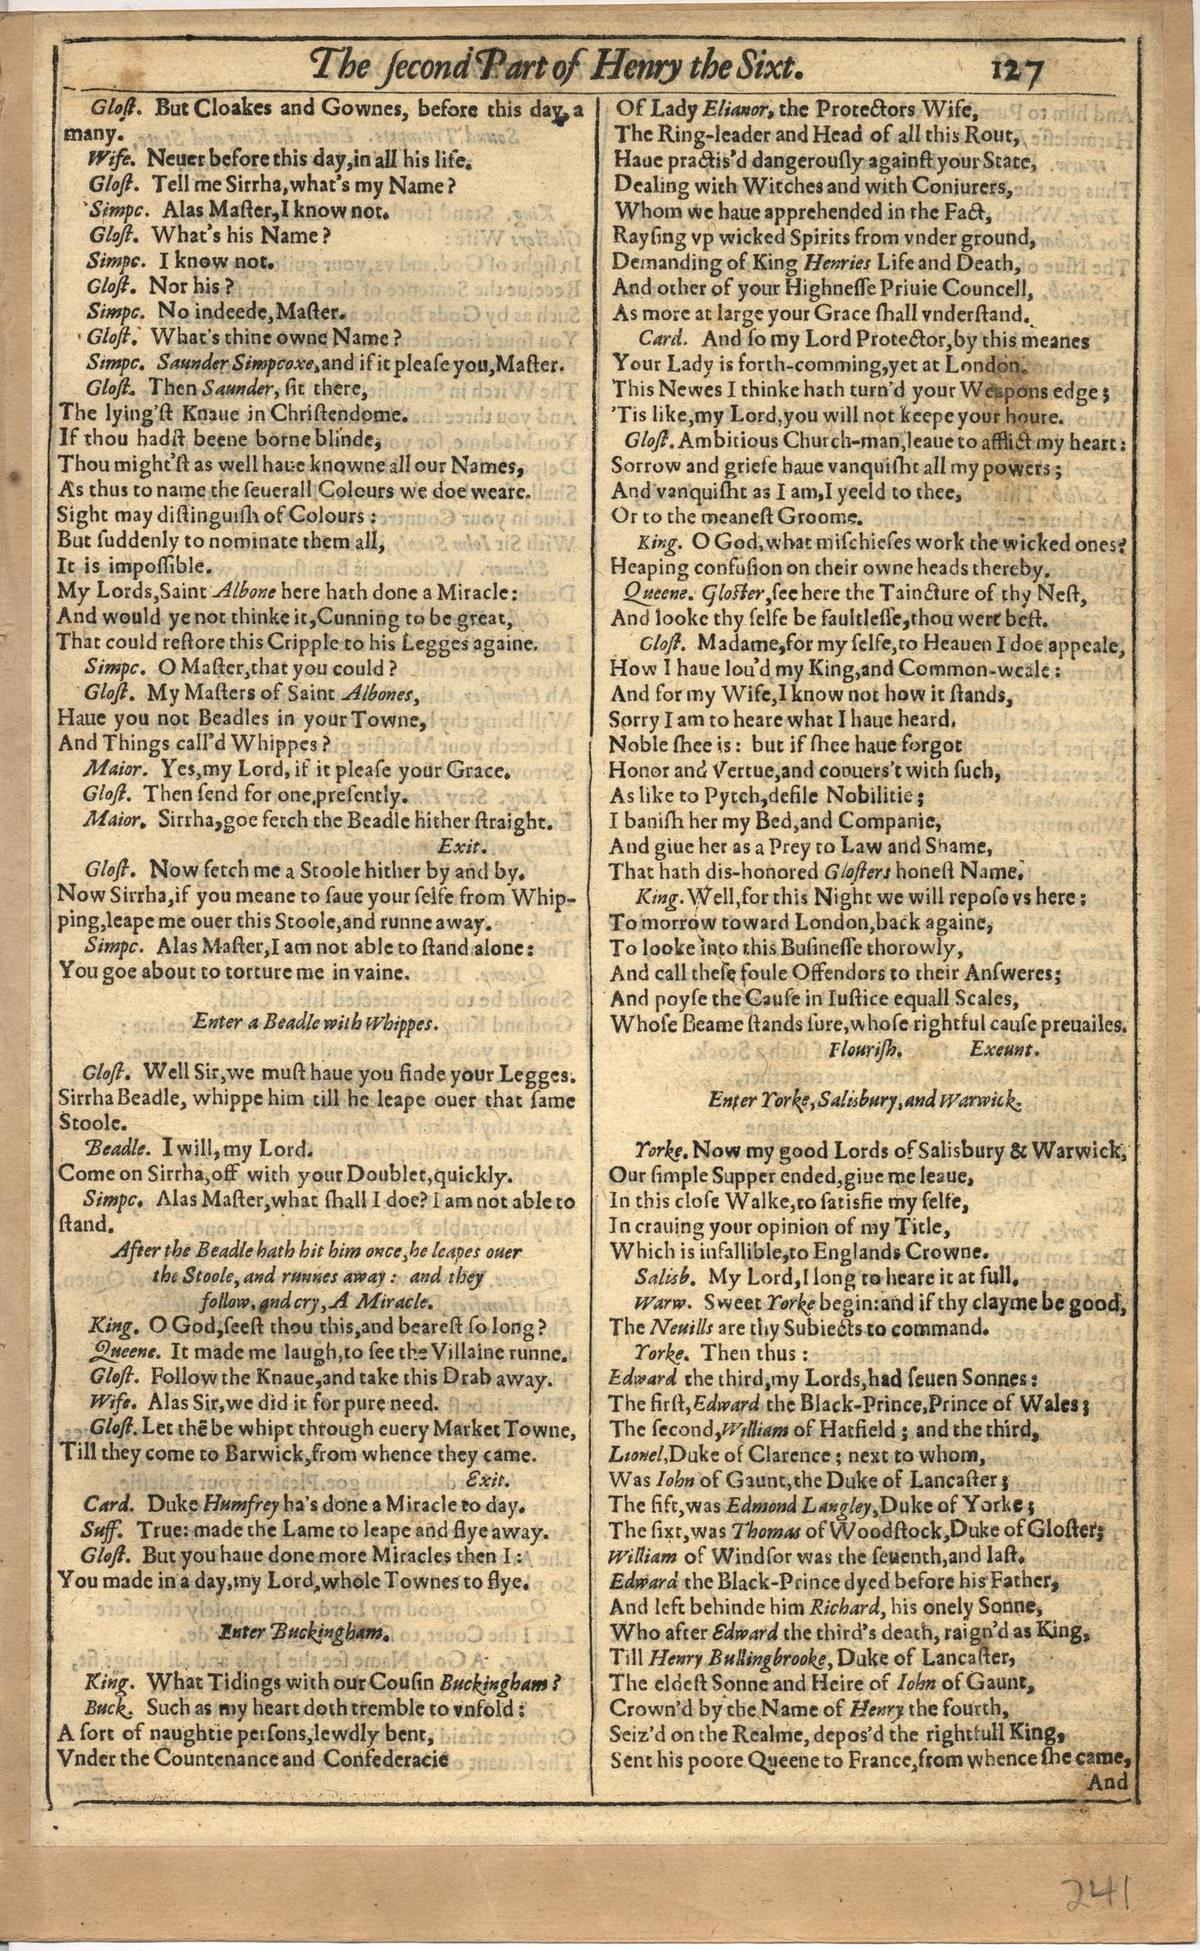 The ſecond Part of Henry the Sixt. 127
Gloſt. But Cloakes and Gownes, before this day, a
many.
Wife. Neuer before this day,in all his life.
Gloſt. Tell me Sirrha,what's my Name?
Simpc. Alas Maſter,I know not.
Gloſt. What's his Name?
Simpc. I know not.
Gloſt. Nor his?
Simpc. No indeede,Maſter.
Gloſt. What's thine owne Name?
Simpc. Saunder Simpcoxe,and if it pleaſe you,Maſter.
Gloſt. Then Saunder, ſit there,
The lying'ſt Knaue in Chriſtendome.
If thou hadſt beene borne blinde,
Thou might'ſt as well haue knowne all our Names,
As thus to name the ſeuerall Colours we doe weare.
Sight may diſtinguiſh of Colours:
But ſuddenly to nominate them all,
It is impoſſible.
My Lords,Saint Albone here hath done a Miracle:
And would ye not thinke it,Cunning to be great,
That could reſtore this Cripple to his Legges againe.
Simpc. O Maſter,that you could?
Gloſt. My Maſters of Saint Albones,
Haue you not Beadles in your Towne,
And Things call'd Whippes?
Maior. Yes,my Lord, if it pleaſe your Grace.
Gloſt. Then ſend for one,preſently.
Maior. Sirrha,goe fetch the Beadle hither ſtraight.
Exit.
Gloſt. Now fetch me a Stoole hither by and by.
Now Sirrha,if you meane to ſaue your ſelfe from Whip-
ping,leape me ouer this Stoole,and runne away.
Simpc. Alas Maſter,I am not able to ſtand alone:
You goe about to torture me in vaine.
Enter a Beadle with Whippes.
Gloſt. Well Sir,we muſt haue you finde your Legges.
Sirrha Beadle, whippe him till he leape ouer that ſame
Stoole.
Beadle. I will,my Lord.
Come on Sirrha,off with your Doublet,quickly.
Simpc. Alas Maſter,what ſhall I doe? I am not able to
ſtand.
After the Beadle hath hit him once,he leapes ouer
the Stoole, and runnes away: and they
follow, and cry, A Miracle.
King. O God,ſeeſt thou this,and beareſt ſo long?
Queene. It made me laugh,to ſee the Villaine runne.
Gloſt. Follow the Knaue,and take this Drab away.
Wife. Alas Sir,we did it for pure need.
Gloſt. Let thē be whipt through euery Market Towne,
Till they come to Barwick,from whence they came.
Exit.
Card. Duke Humfrey ha's done a Miracle to day.
Suff. True: made the Lame to leape and flye away.
Gloſt. But you haue done more Miracles then I:
You made in a day,my Lord,whole Townes to flye.
Enter Buckingham.
King. What Tidings with our Couſin Buckingham?
Buck. Such as my heart doth tremble to vnfold:
A ſort of naughtie perſons,lewdly bent,
Vnder the Countenance and Confederacie
Of Lady Elianor, the Protectors Wife,
The Ring-leader and Head of all this Rout,
Haue practis'd dangerouſly againſt your State,
Dealing with Witches and with Coniurers,
Whom we haue apprehended in the Fact,
Rayſing vp wicked Spirits from vnder ground,
Demanding of King Henries Life and Death,
And other of your Highneſſe Priuie Councell,
As more at large your Grace ſhall vnderſtand.
Card. And ſo my Lord Protector,by this meanes
Your Lady is forth-comming,yet at London.
This Newes I thinke hath turn'd your Weapons edge;
'Tis like,my Lord,you will not keepe your houre.
Gloſt. Ambitious Church-man,leaue to afflict my heart:
Sorrow and griefe haue vanquiſht all my powers;
And vanquiſht as I am,I yeeld to thee,
Or to the meaneſt Groome.
King. O God,what miſchiefes work the wicked ones?
Heaping confuſion on their owne heads thereby.
Queene. Gloſter,ſee here the Taincture of thy Neſt,
And looke thy ſelfe be faultleſſe,thou wert beſt.
Gloſt. Madame,for my ſelfe,to Heauen I doe appeale,
How I haue lou'd my King,and Common-weale:
And for my Wife,I know not how it ſtands,
Sorry I am to heare what I haue heard.
Noble ſhee is: but if ſhee haue forgot
Honor and Vertue,and conuers't with ſuch,
As like to Pytch,defile Nobilitie;
I baniſh her my Bed,and Companie,
And giue her as a Prey to Law and Shame,
That hath dis-honored Gloſters honeſt Name.
King. Well,for this Night we will repoſe vs here:
To morrow toward London,back againe,
To looke into this Buſineſſe thorowly,
And call theſe foule Offendors to their Anſweres;
And poyſe the Cauſe in Iuſtice equall Scales,
Whoſe Beame ſtands ſure,whoſe rightful cauſe preuailes.
Flouriſh. Exeunt.
Enter Yorke,Salisbury,and Warwick.
Yorke. Now my good Lords of Salisbury & Warwick,
Our ſimple Supper ended,giue me leaue,
In this cloſe Walke,to ſatisfie my ſelfe,
In crauing your opinion of my Title,
Which is infallible,to Englands Crowne.
Salisb. My Lord,I long to heare it at full.
Warw. Sweet Yorke begin:and if thy clayme be good,
The Neuills are thy Subiects to command.
Yorke. Then thus:
Edward the third,my Lords,had ſeuen Sonnes:
The firſt,Edward the Black-Prince,Prince of Wales;
The ſecond,William of Hatfield; and the third,
Lionel,Duke of Clarence; next to whom,
Was Iohn of Gaunt,the Duke of Lancaſter;
The fift,was Edmond Langley,Duke of Yorke;
The ſixt,was Thomas of Woodſtock,Duke of Gloſter;
William of Windſor was the ſeuenth,and laſt.
Edward the Black-Prince dyed before his Father,
And left behinde him Richard, his onely Sonne,
Who after Edward the third's death, raign'd as King,
Till Henry Bullingbrooke, Duke of Lancaſter,
The eldeſt Sonne and Heire of Iohn of Gaunt,
Crown'd by the Name of Henry the fourth,
Seiz'd on the Realme, depos'd the rightfull King,
Sent his poore Queene to France,from whence ſhe came,
And
241